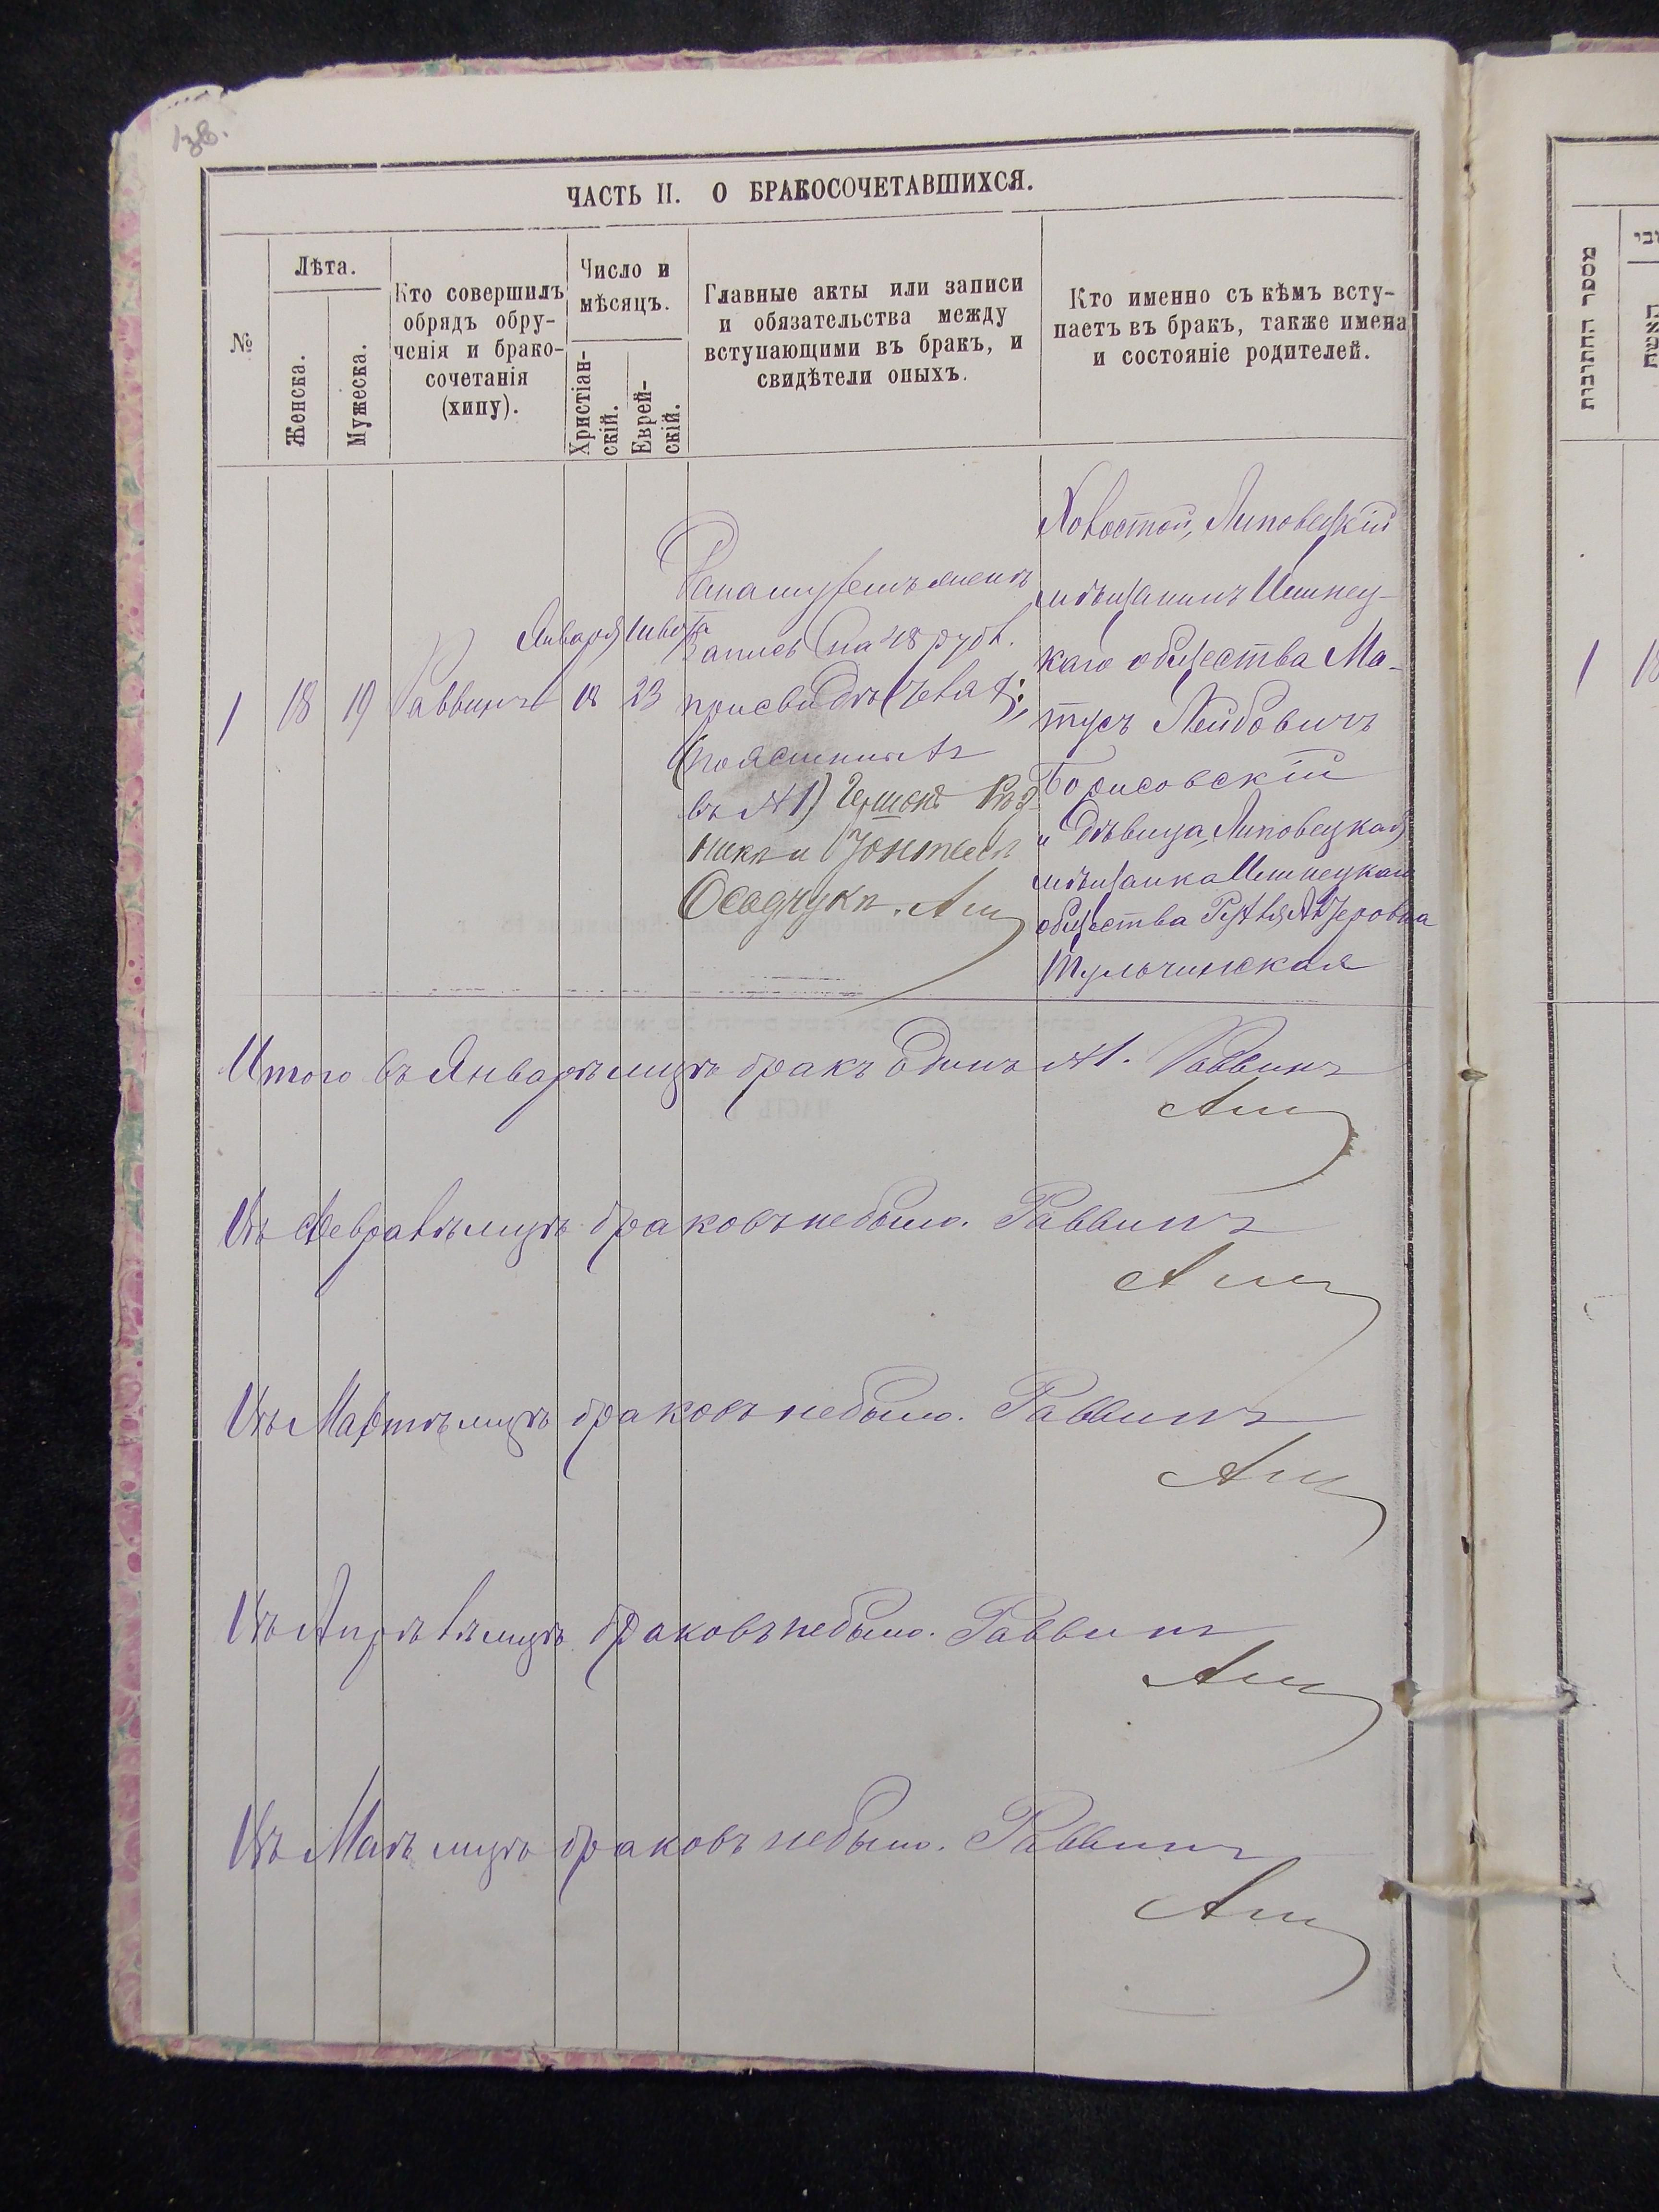 138.
ЧАСТЬ II. О БРАКОСОЧЕТАВШИХСЯ.
№
Лѣта.
Женска.
Мужеска.
Кто совершилъ
обрядъ обру-
ченія и брако-
сочетанія
(хипу).
Число и
мѣсяцъ.
Христіан-
скій.
Еврей-
скій.
Главные акты или записи
и обязательства между
вступающими въ бракъ, и
свидѣтели оныхъ.
Кто именно съ кѣмъ всту-
паетъ въ бракъ, также имена
и состояніе родителей.
1
18
19
Раввинъ
Января
18
Шввта
23
запись на 48 рубл.
въ №1)
и
Осадчука. Аш
Холостой, Липовецкій
мѣщанинъ Илинец-
каго общества Ма-
тусъ Лейбовичъ
Борисовскій
и дѣвица, Липовецкая
мѣщанка Илинецкаго
общества
Тульчинская
Итого въ Январѣ мцѣ бракъ одинъ №1. Раввинъ
Аш
Въ Февралѣ мцѣ браковъ небыло. Раввинъ
Аш
Въ Мартѣ мцѣ браковъ небыло. Раввинъ
Аш
Въ Апрѣлѣ мцѣ браковъ небыло. Раввинъ
Аш
Въ Маѣ мцѣ браковъ небыло. Раввинъ
Аш
מספר החתונות
האשה
1